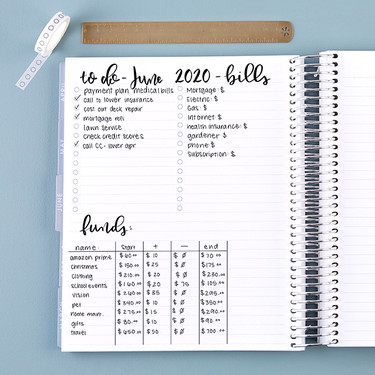 to do - June 2020 - bills
payment plan medical bills
✓ call to lower insurance
✓ cost out deck repair
✓ mortgage roll
lawn service
check credit scores
✓ call CC - lower apr
Mortgage: $
Electric: $
Gas: $
Internet $
health insurance: $
gardener $
phone: $
Subscription: $
funds:
name: start + — end
amazon prime $60.00 $10 $Ø $70.00
christmas $150.00 $25 $Ø $175.00
clothing $210.00 $20 $Ø $230.00
school events $160.00 $20 $75 $105.00
vision $260.00 $35 $Ø $295.00
pet $340.00 $10 $Ø $350.00
home maint. $275.00 $15 $Ø $290.00
gifts $80.00 $10 $Ø $90.00
travel $650.00 $50 $Ø $700.00